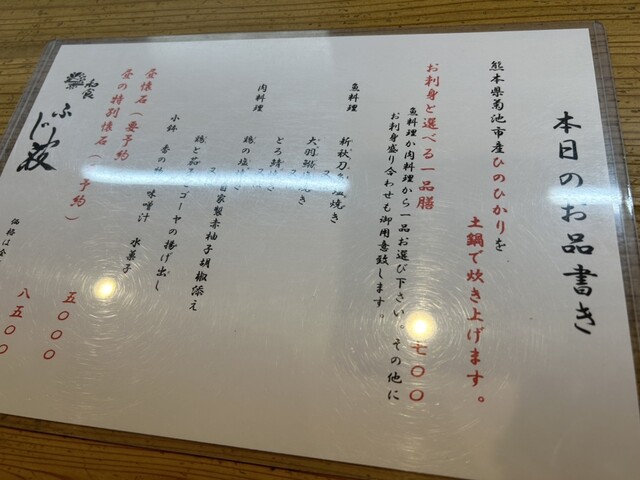 本日のお品書き
熊本県菊池市産ひのひかりを
土鍋で炊き上げます。
お刺身と選べる一品膳
七〇〇
魚料理か肉料理から一品お選び下さい。その他に
お刺身盛り合わせも御用意致します。
魚料理
新秋刀 塩焼き
大羽鰯 き
とろ鯖 き
肉料理
鶏の塩 き
自家製赤柚子胡椒添え
鶏と茄子 ゴーヤの揚げ出し
小鉢 香の 味噌汁 水菓子
昼懐石(要予約
五〇〇〇
昼の特別懐石( 予約)
八五〇〇
価格は
和食
ふじ荻